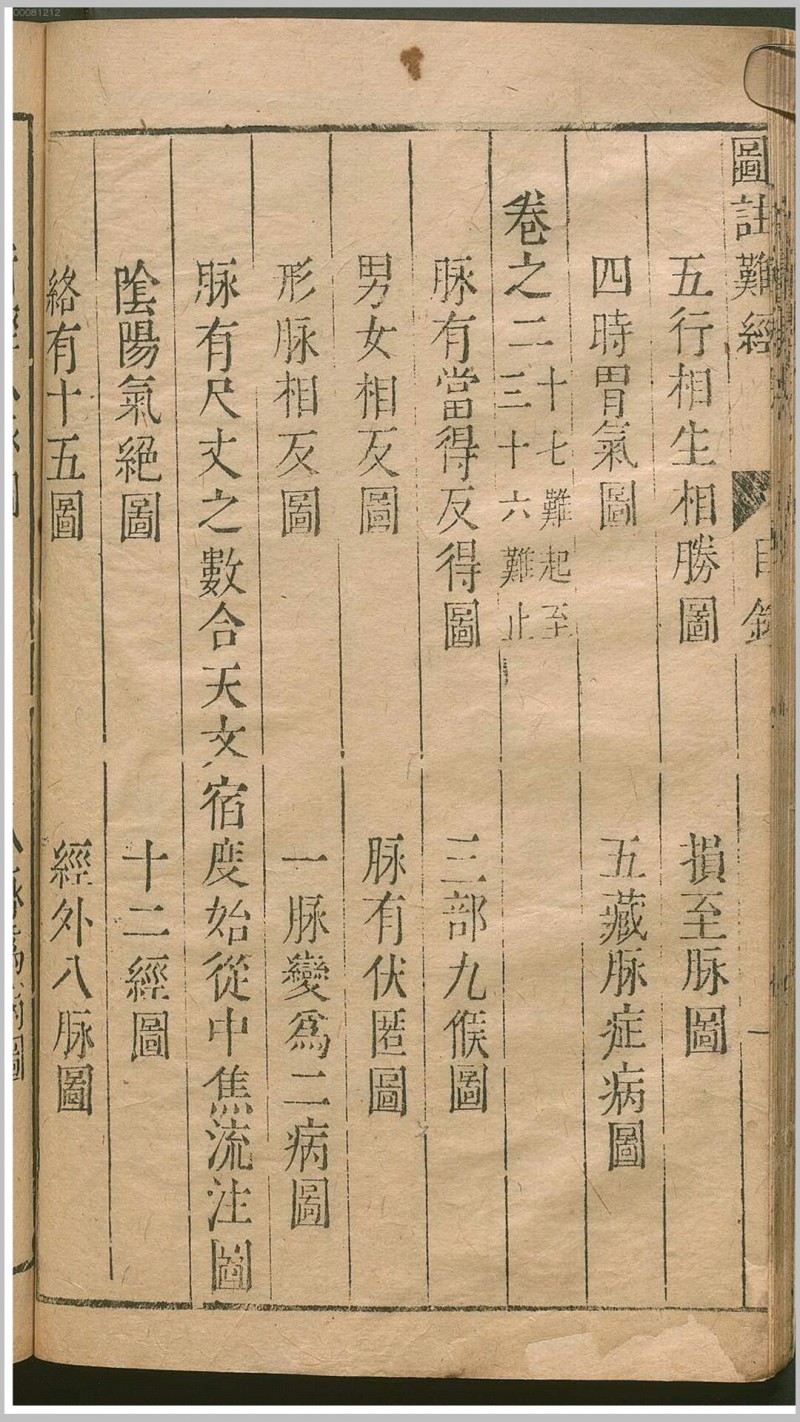 圖註難經 目錄 一
五行相生相勝圖 損至脉圖
四時胃氣圖 五藏脉症病圖
卷之二 十七難起至三十六難止
脉有當得反得圖 三部九候圖
男女相反圖 脉有伏匿圖
形脉相反圖 一脉變為二病圖
脉有尺丈之數合天文宿度始從中焦流注圖
陰陽氣絕圖 十二經圖
絡有十五圖 經外八脉圖
00081212